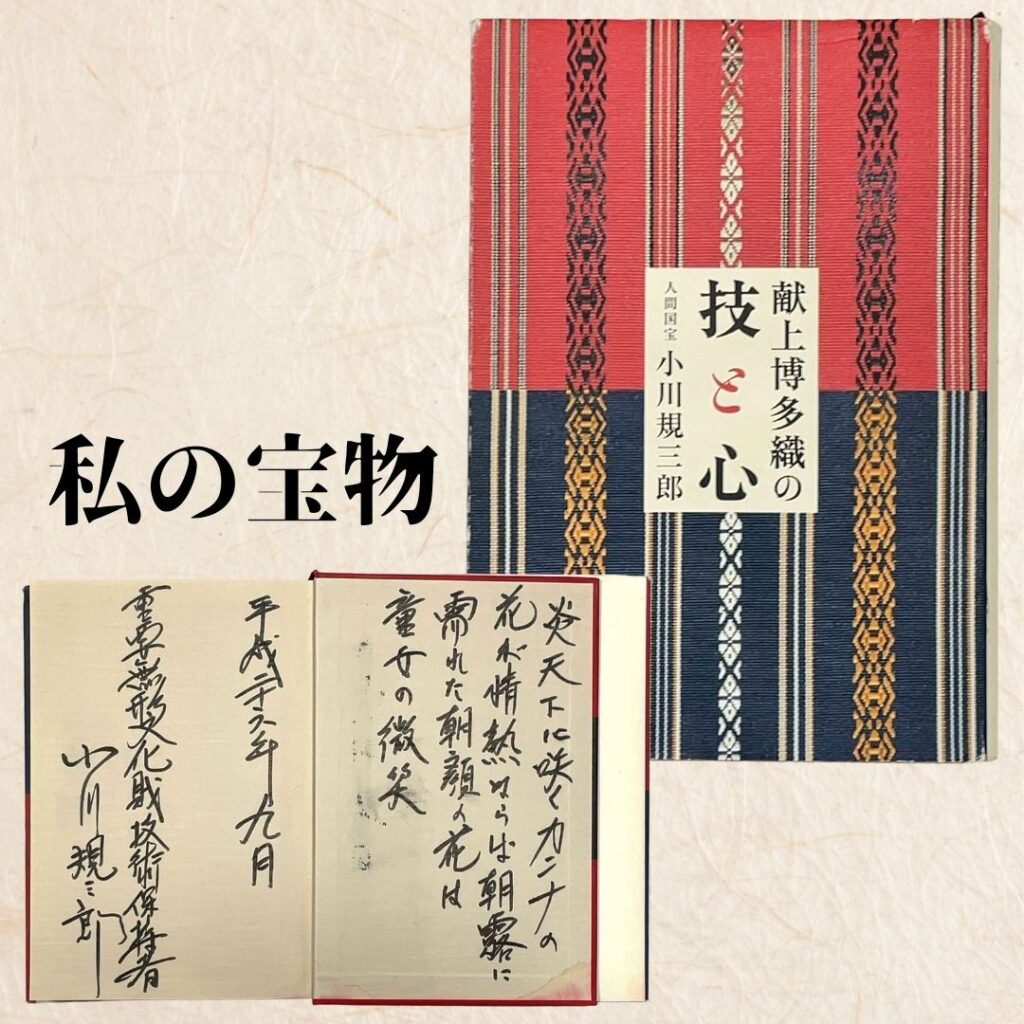 献上博多織の
技と心
人間国宝 小川規三郎
私の宝物
炎天下に咲くカンナの
花が情熱ならば朝露に
濡れた朝顔の花は
童女の微笑
平成二十六年九月
重要無形文化財技術保持者
小川規三郎